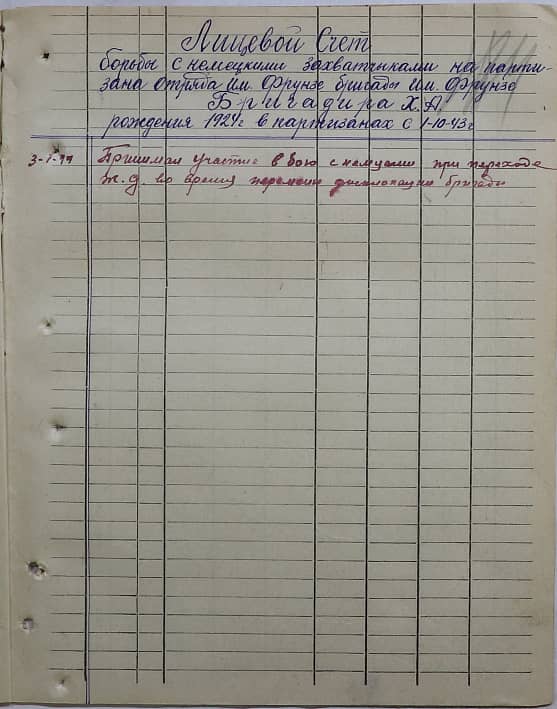 Лицевой Счет
борьбы с немецкими захватчиками на парти-
зана отряда им. Фрунзе бригады им. Фрунзе
Бригадира Х.А.
рождения 1924г в партизанах с 1-10-43г
3-7-44 Принимал участие в бою с немцами при переходе
ж.д. во время перемены дислокации бригады